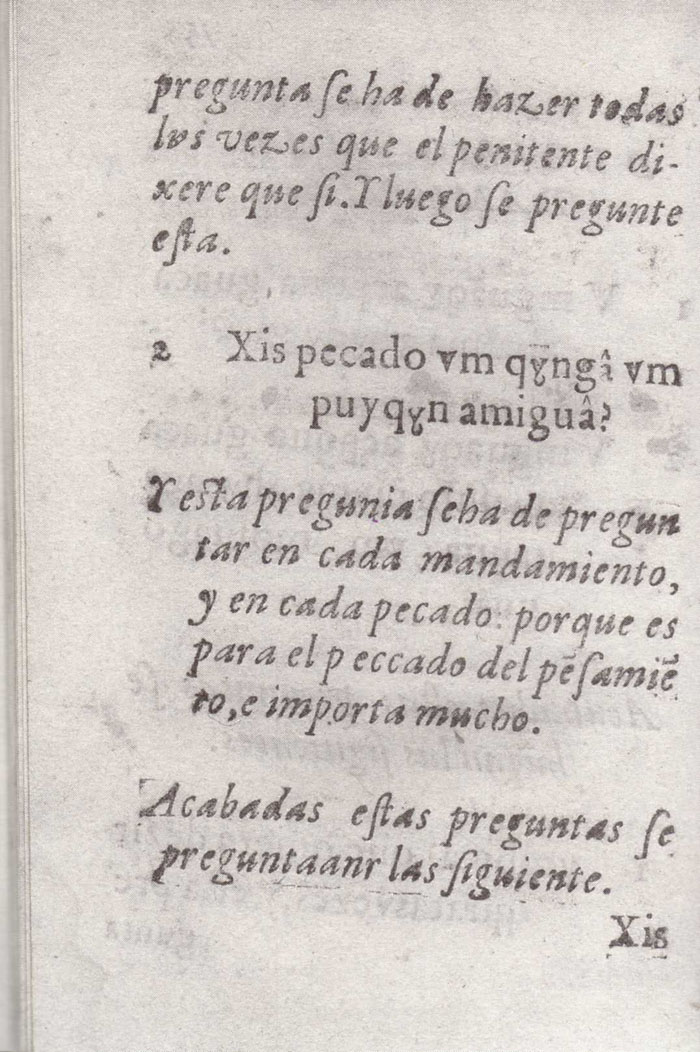 pregunta ſe ha de hazer todas
lvs vezes que el penitente di-
xere que ſi. Y luego ſe pregunte
eſta.
2 Xis pecado vm qɣ̄ngâ vm
puyqɣn amiguâ?
Y eſta pregunia ſeha de pregun
tar en cada mandamiento,
y en cada pecado: porque es
para el p eccado del pēſamiē
to, e importa mucho.
Acabadas eſtas preguntas ſe
preguntaanr las ſiguiente.
Xis